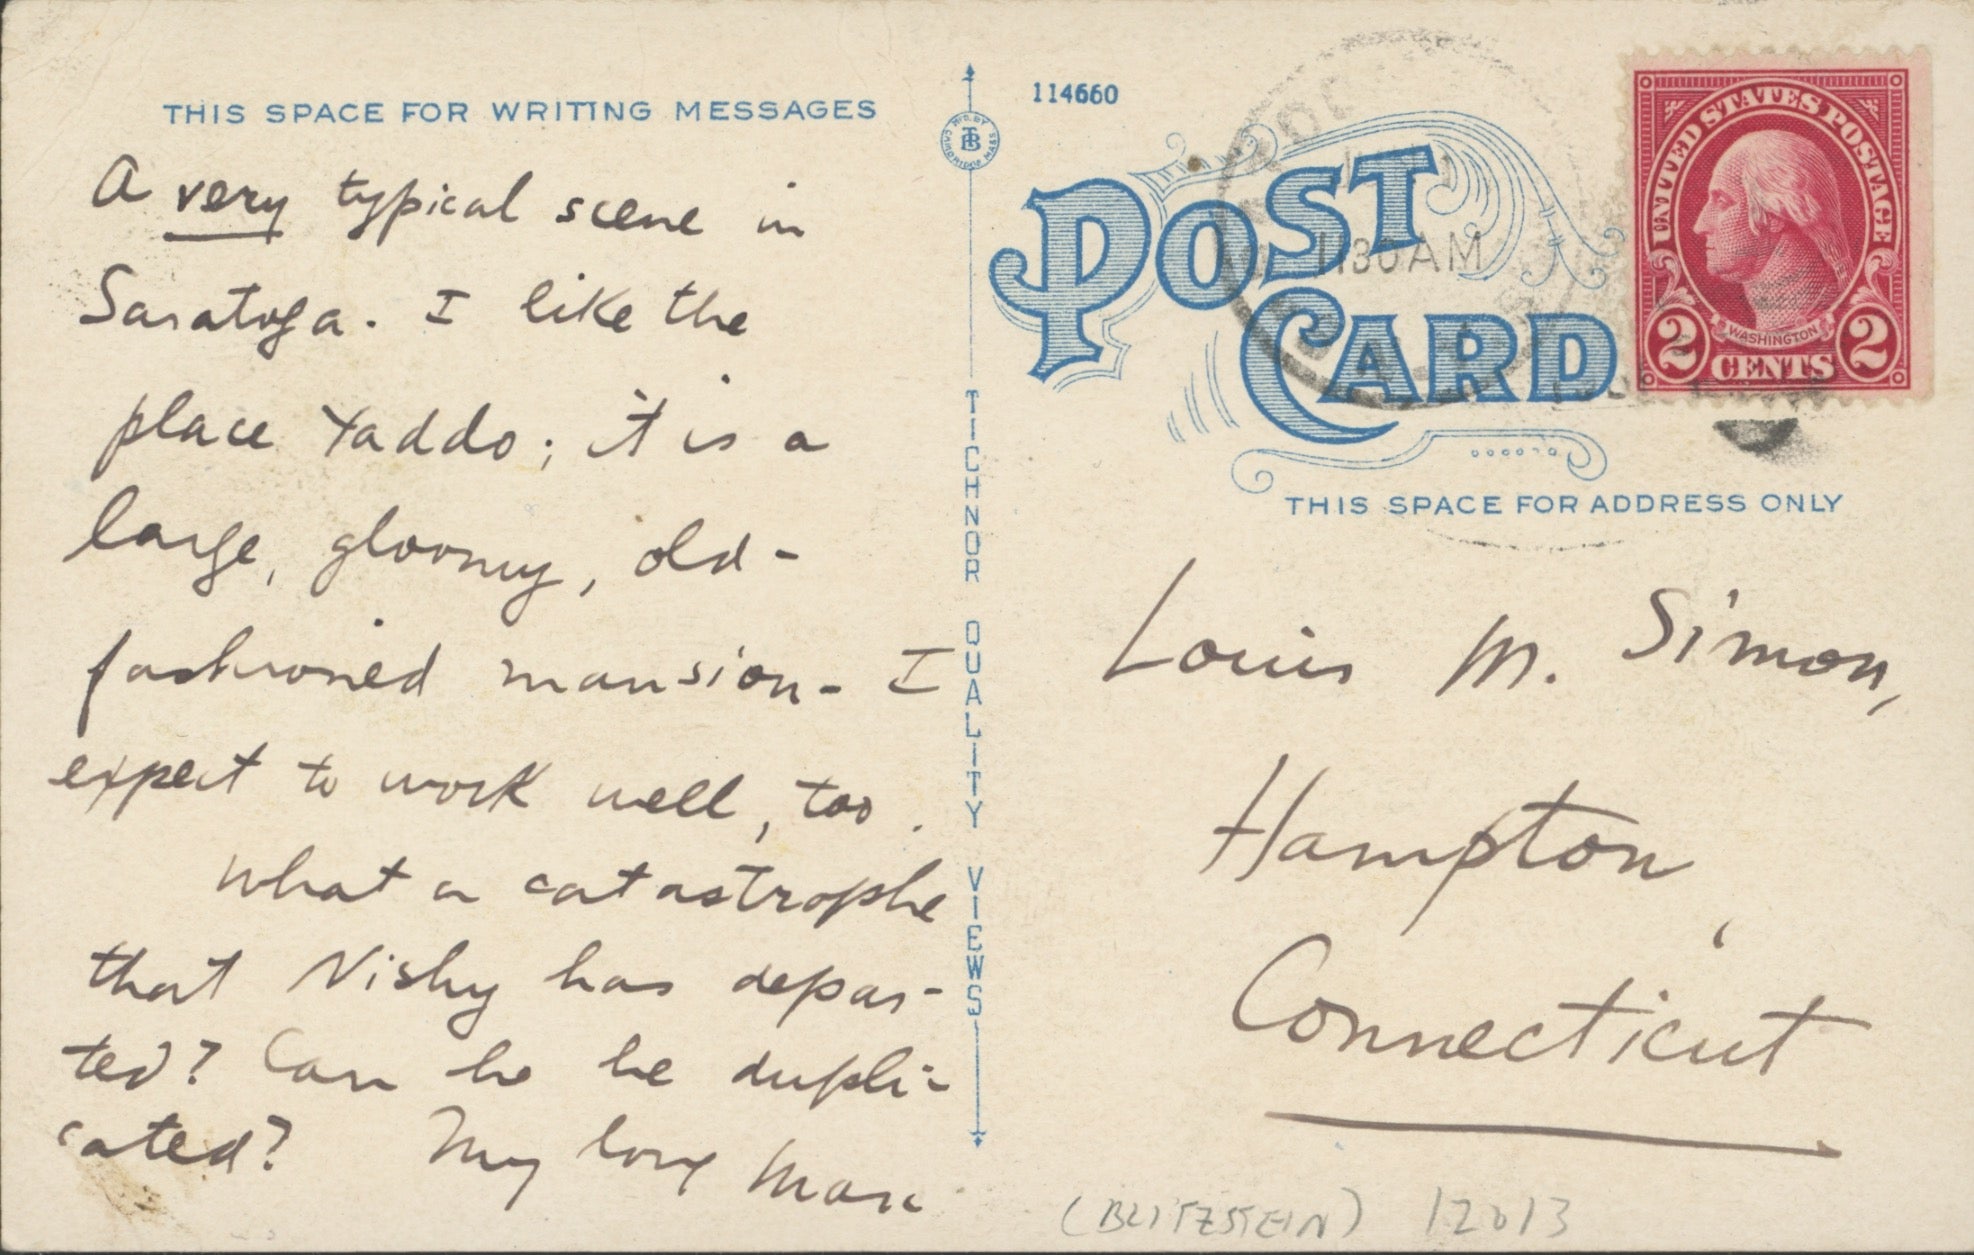 THIS SPACE FOR WRITING MESSAGES
A very typical scene in
Saratoga. I like the
place Yaddo; it is a
large, gloomy, old-
fashioned mansion - I
expect to work well, too.
What a catastrophe
that Nishy has depar-
ted? Can he be dupli-
cated? My love Marc
MFG. BY
TB
CAMBRIDGE MASS
TICHNOR QUALITY VIEWS
114660
POST
CARD
1130 AM
UNITED STATES POSTAGE
WASHINGTON
2 CENTS 2
THIS SPACE FOR ADDRESS ONLY
Louis M. Simon,
Hampton,
Connecticut
(BLITZSTEIN) 12013